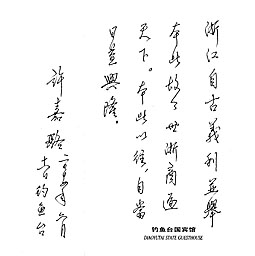 浙江自古義利並舉
本此故了世浙商通
天下。本些以往,自當
日益興隆。
許嘉璐
二〇〇年六月
于钓鱼台
钓鱼台国宾馆
DIAOYUTAI STATE GUESTHOUSE